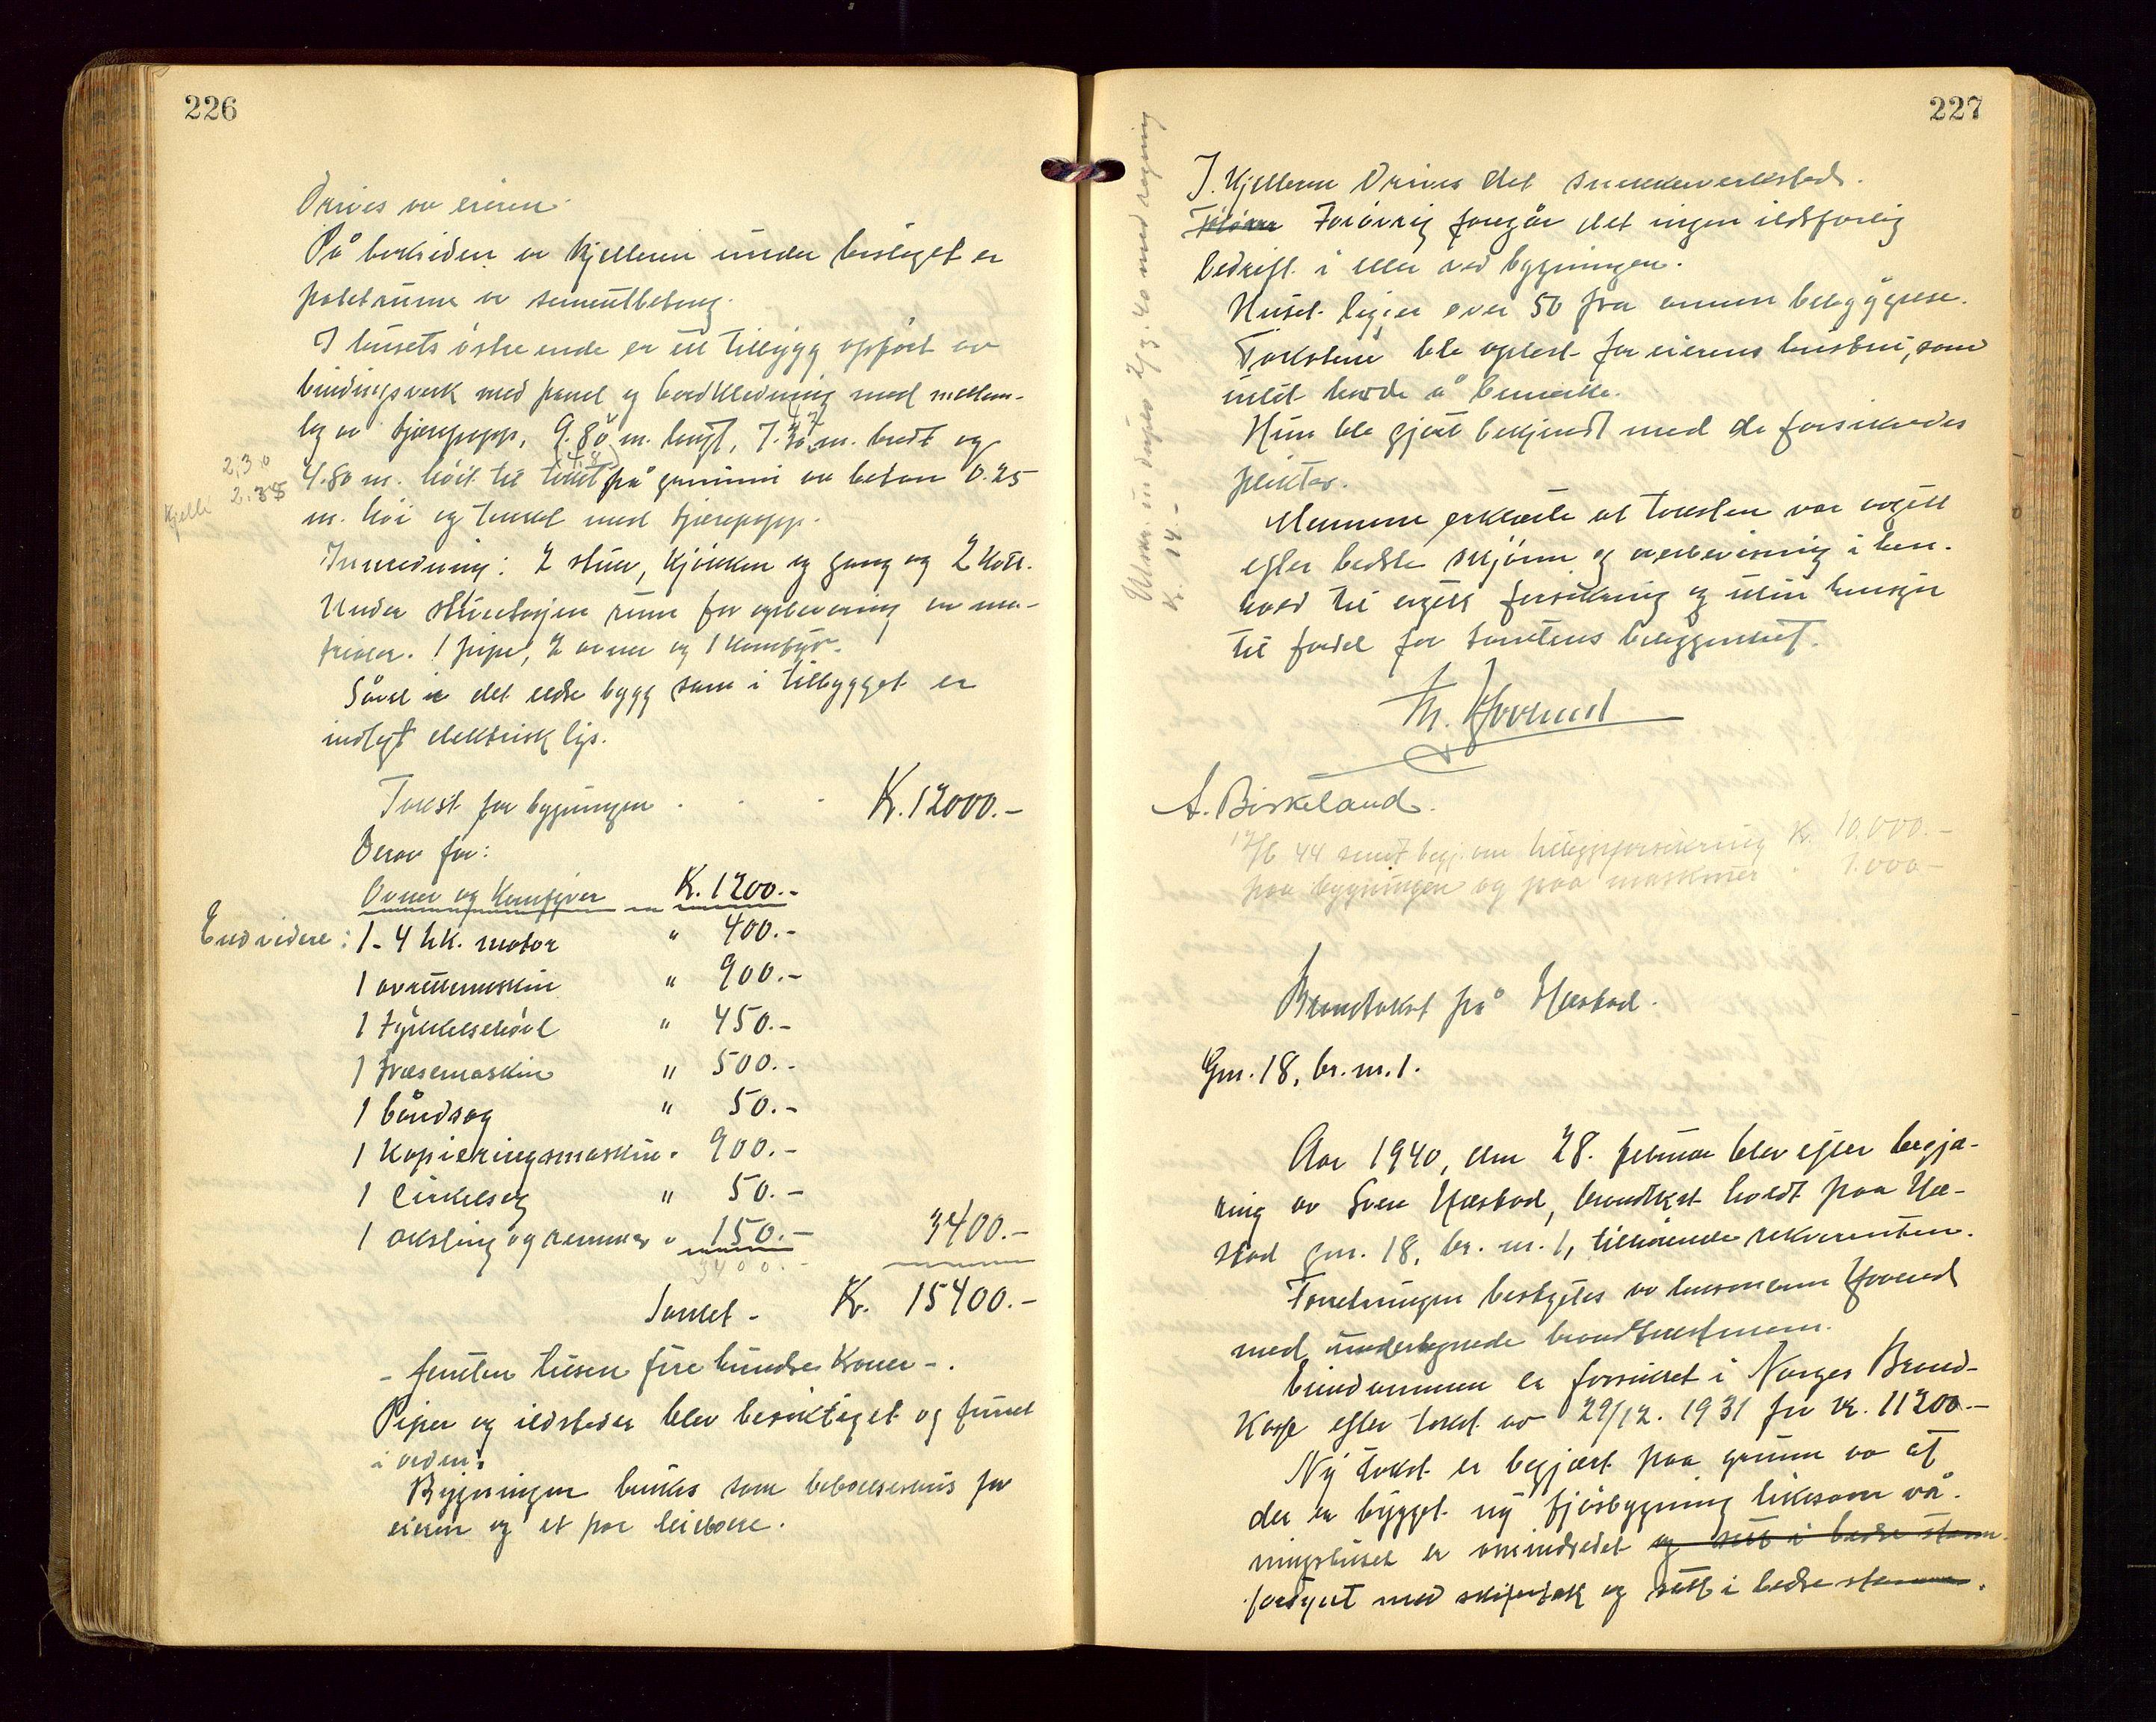 226
Drives av eieren.
På baksiden av kjelleren under bislaget er
potetrume av sementbetong.
I husets østre ende er et tillbygg opført av
bindingsverk med panel og bordkledning med mellem-
leg av tjærepapp, 9.80 m. langt, 7.30 m. bredt og
4.80 m. høit til taket på grunnmur av beton 0.25
2.30
Kjell 2.35
m. høi og tækket med tjærepapp.
Innredning: 2 stuer, kjøkken og gang og 2 kott.
Under stueetasjen rum for opbevaring av ma-
trialer. 1 pipe, 2 ovner og 1 komfyr.
Såvel i det eldre bygg som i tilbygget er
indlagt elektrisk lys.
Takst for bygningen . . . K. 12000.-
Derav for:
Ovner og komfyrer K. 1200.-
Endvidere: 1 - 4 hk. motor " 400.-
1 avrettemaskin " 900.-
1 tykkelsehøvl " 450.-
1 fræsemaskin " 500.-
1 båndsag " 50.-
1 Kopieringsmaskin " 900.-
1 cirkelsag " 50.-
1 aksling og remmer " 150.- 3400.-
3400.-
Samlet - Kr. 15400.-
- femten tusen fire hundre Kroner -.
Piper og ildsteder blev besiktiget og funnet
i orden.
Bygningen brukes som beboelseshus for
eieren og et par leieboere.
227
I. kjelleren drives det snekkerverksted.
Forøvrig foregår det ingen ildsfarlig
bedrift i eller ved bygningen.
Huset ligger over 50 fra annen bebyggelse.
Taksten ble oplest for eierens hustru, som
intet hadde å bemerke.
Hun ble gjort bekjendt med de forsikredes
plikter.
Mennene erklærte at taksten var avgitt
efter bedste skjønn og overbevisning i hen-
hold til avgitt forsikring og uten hensyn
til fordel for tomtens beliggenhet.
Th. Hovund
A. Birkeland.
17/6 44 sendt begj. om tilleggsforsikring K. 10.000.-
paa bygningen og paa maskiner " 1.000-
2/3. 40 med regning
Kr. 14.-
Brandtakst på Hæstad.
Gm. 18, br. nr. 1.
Aar 1940, den 28. februar blev efter begjæ-
ring av Sven Hæstad, brandtakst holdt paa Hæ-
stad gnr. 18, br. nr. 1, tilhørende rekvirenten.
Forretningen bestyrtes av lensmann Hovund
med undertegnede brandtakstmenn.
Eiendommen er forsikret i Norges Brand-
kasse efter takst av 29/12. 1931 for kr. 11200.-
Ny takst er begjært paa grunn av at
der er bygget ny fjøsbygning likesom vå-
ningshuset er ominnredet og sett i bedre stann.
forsynt med skifertak og sett i bedre stann.